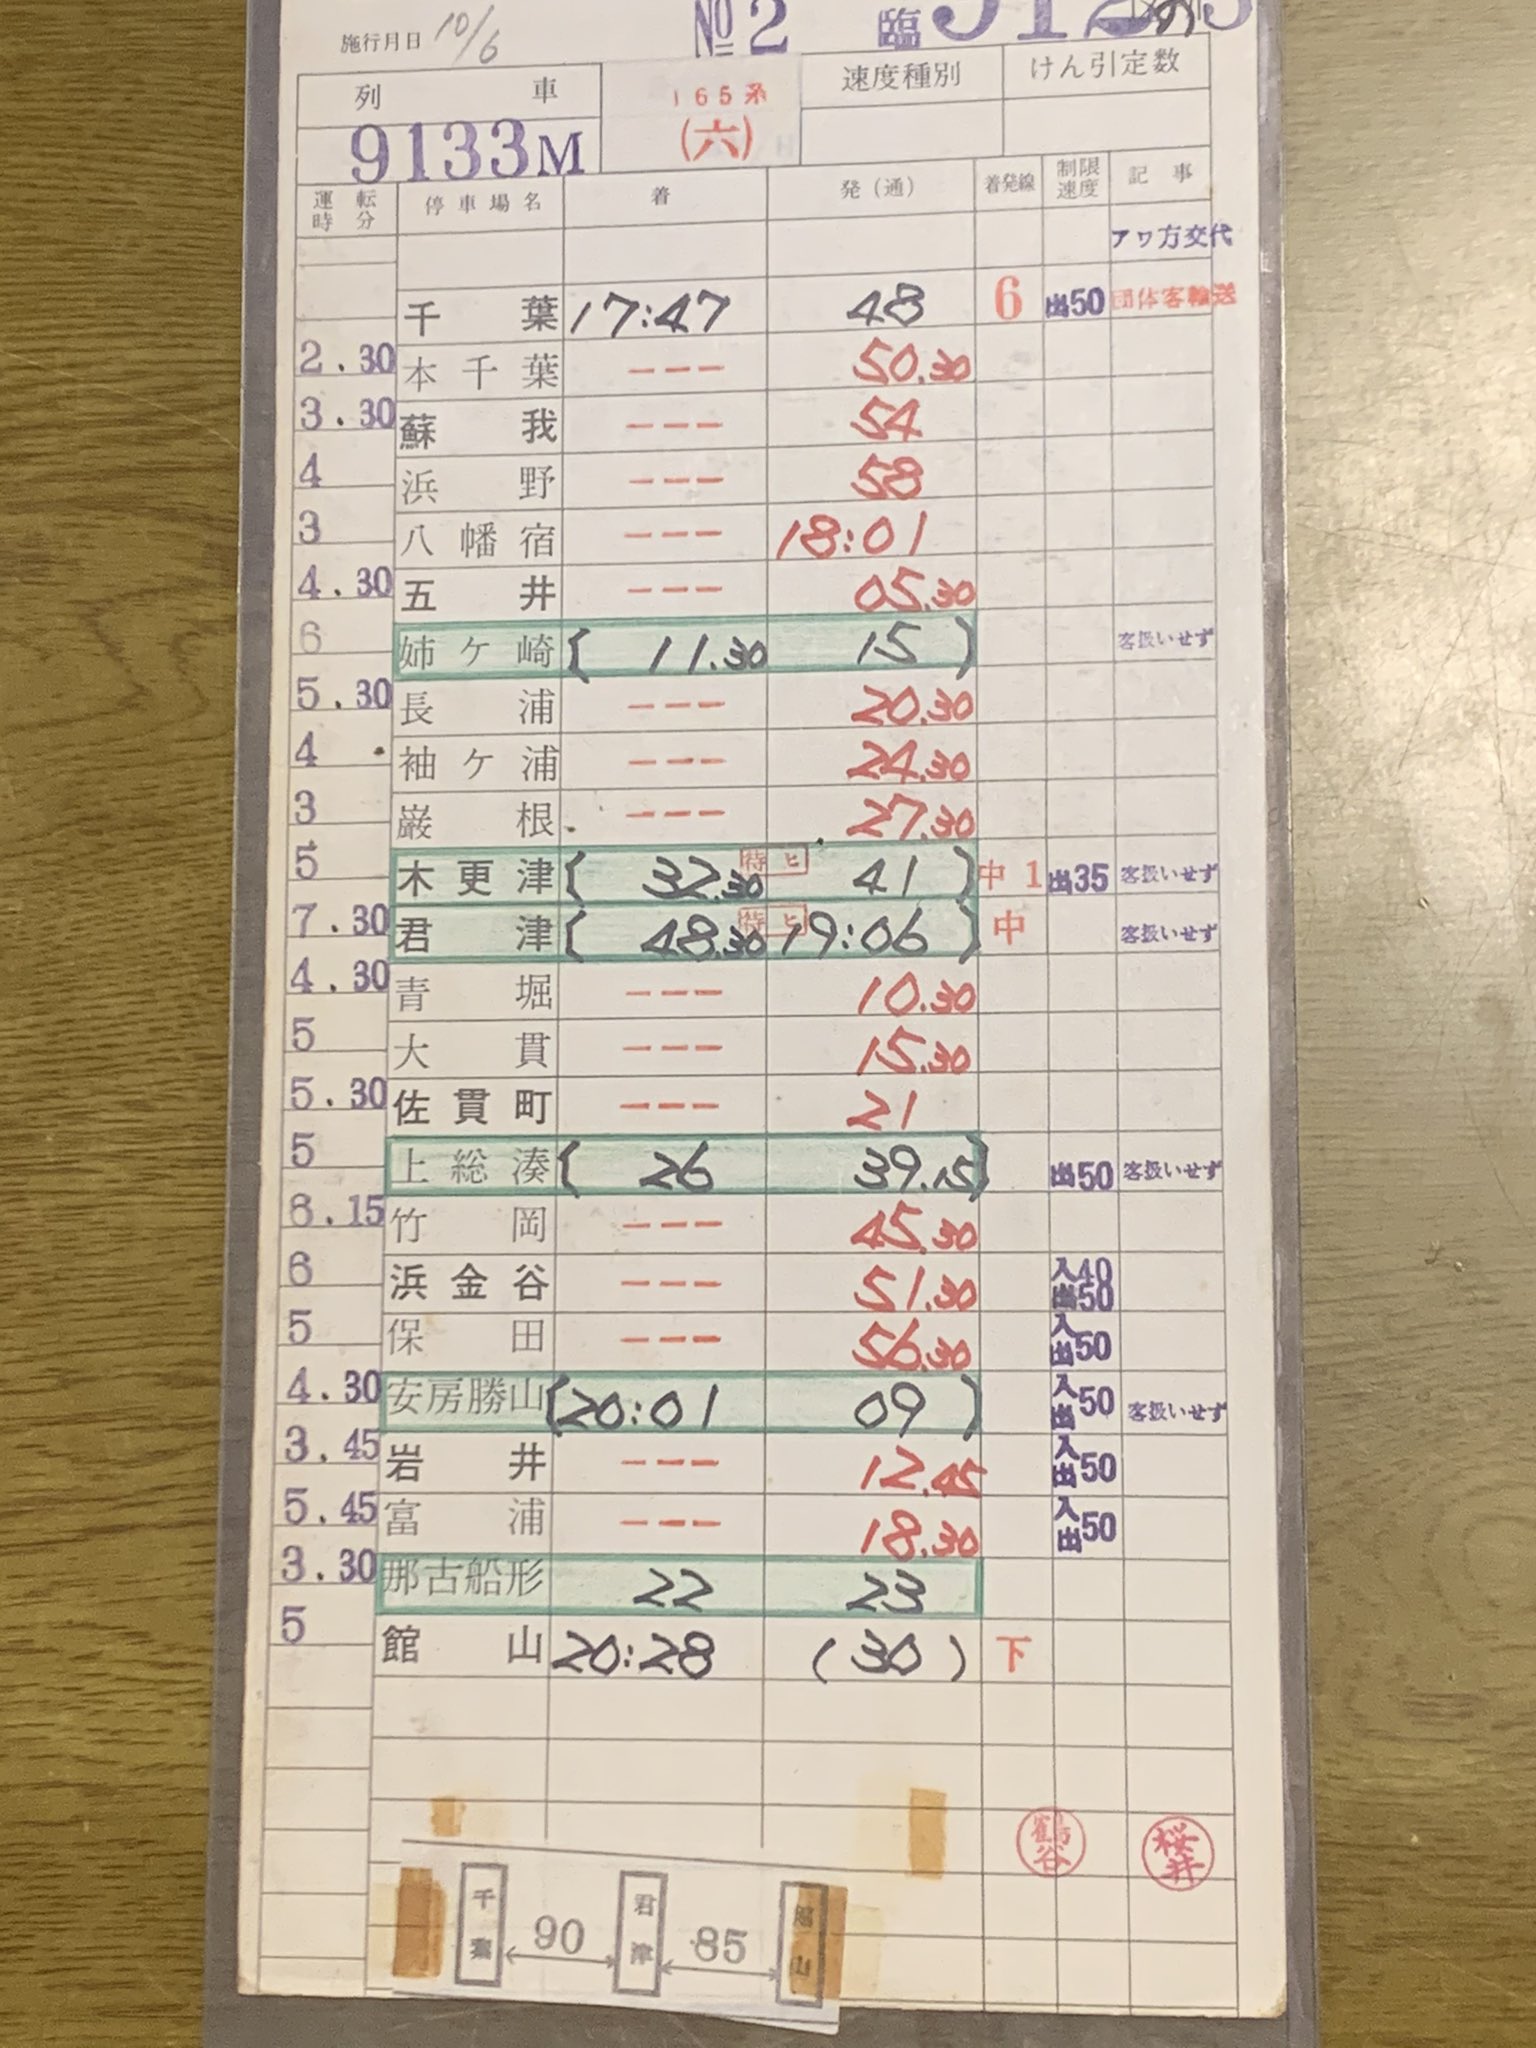 施行月日 10/6 No.2 臨
列車 165系 速度種別 けん引定数
9133M (六)
運転時分 停車場名 着 発(通) 着発線 制限速度 記事
アワ方交代
千葉 17:47 48 6 出50 団体客輸送
2.30 本千葉 --- 50.30
3.30 蘇我 --- 54
4 浜野 --- 58
3 八幡宿 --- 18:01
4.30 五井 --- 05.30
6 姉ケ崎 ( 11.30 15 ) 客扱いせず
5.30 長浦 --- 20.30
4 袖ケ浦 --- 24.30
3 巌根 --- 27.30
5 木更津 ( 32.30 待ヒ 41 ) 中1 出35 客扱いせず
7.30 君津 ( 48.30 待ヒ 19:06 ) 中 客扱いせず
4.30 青堀 --- 10.30
5 大貫 --- 15.30
5.30 佐貫町 --- 21
5 上総湊 ( 26 39.15 ) 出50 客扱いせず
6.15 竹岡 --- 45.30
6 浜金谷 --- 51.30 入40 出50
5 保田 --- 56.30 入出50
4.30 安房勝山 ( 20:01 09 ) 入出50 客扱いせず
3.45 岩井 --- 12.45 入出50
5.45 富浦 --- 18.30 入出50
3.30 那古船形 22 23
5 館山 20:28 (30) 下
鶴谷 桜井
千葉 90 君津 85 館山